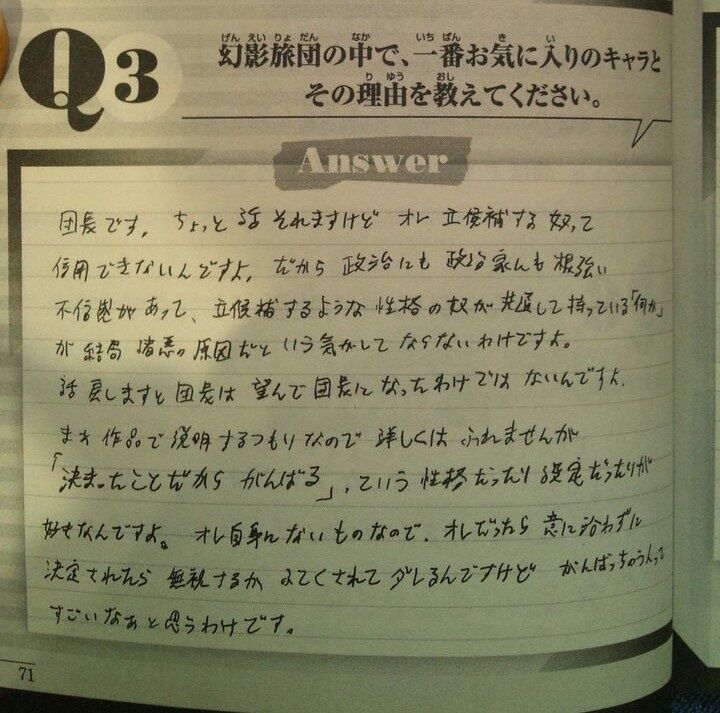 Q3
幻影旅団の中で、一番お気に入りのキャラと
その理由を教えてください。
Answer
団長です。ちょっと話それますけど オレ 立候補する奴って
信用できないんですよ。だから 政治にも 政治家にも 根強い
不信感があって、立候補するような 性格の奴が 共通して持っている「何か」
が 結局 諸悪の 原因だと いう気がして ならないわけですよ。
話戻しますと 団長は 望んで 団長に なったわけでは ないんですよ。
まあ 作品で 説明するつもりなので 詳しくは ふれませんが
「決まったことだから がんばる」、っていう 性格だったり 設定だったりが
好きなんですよ。オレ自身にないものなので。オレだったら 意に沿わずに
決定されたら 無視するか ふてくされて ダレるんですけど がんばっちゃう人って
すごいなぁと 思うわけです。
71